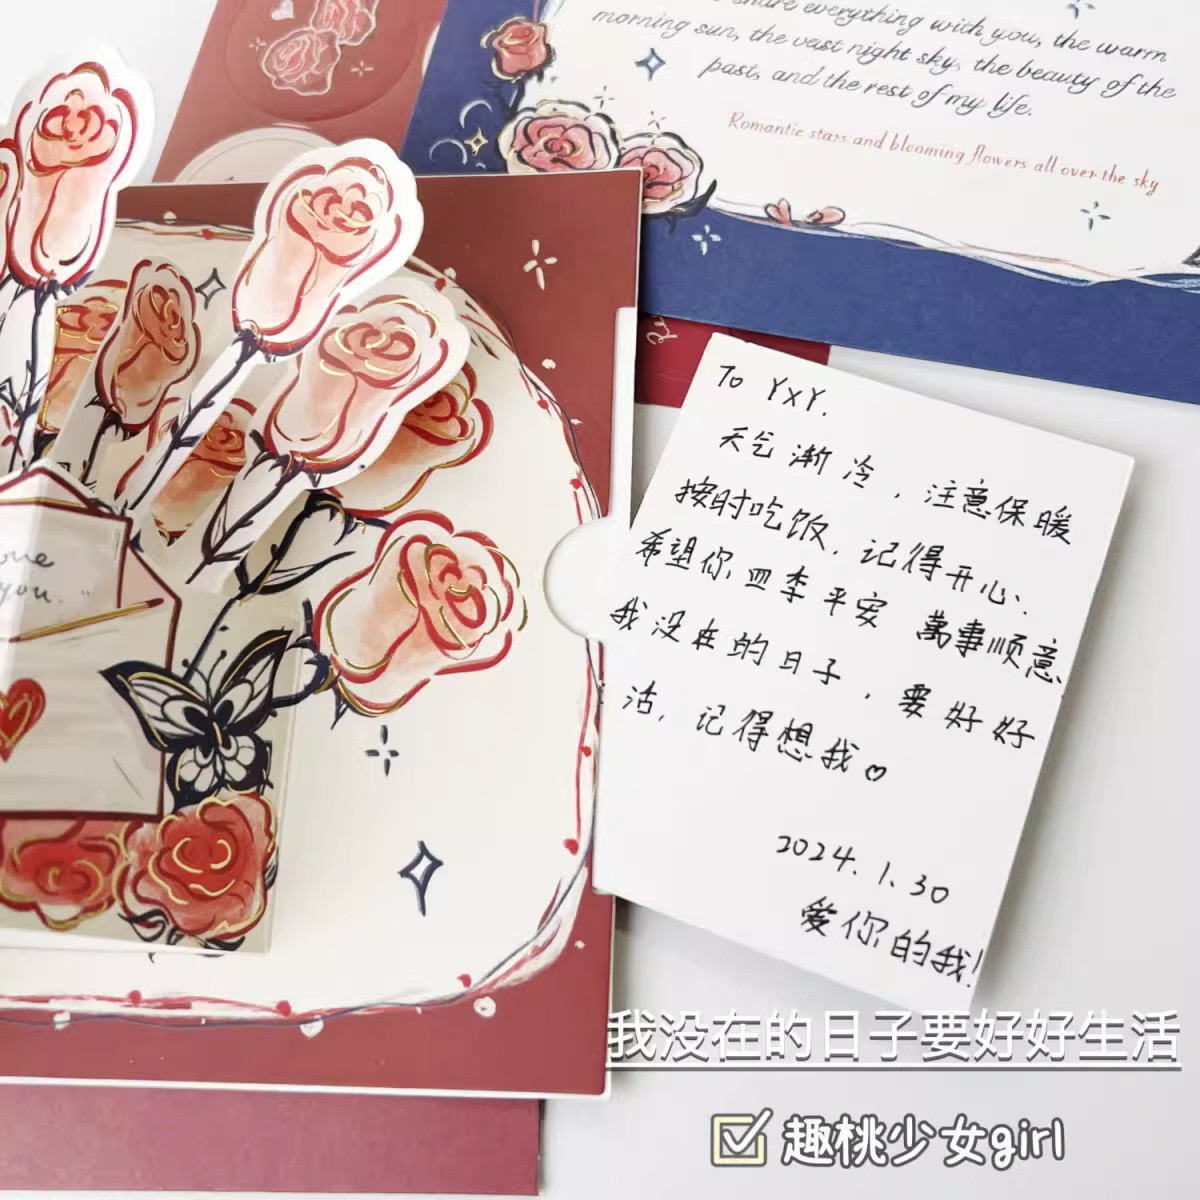 share everything with you, the warm
morning sun, the vast night sky, the beauty of the
past, and the rest of my life.
Romantic stars and blooming flowers all over the sky
you."
To YXY.
天气渐冷，注意保暖
按时吃饭，记得开心、
希望你 四季平安 萬事顺意
我没在的日子，要好好
活，记得想我♡
2024.1.30
爱你的我!
我没在的日子要好好生活
趣桃少女girl